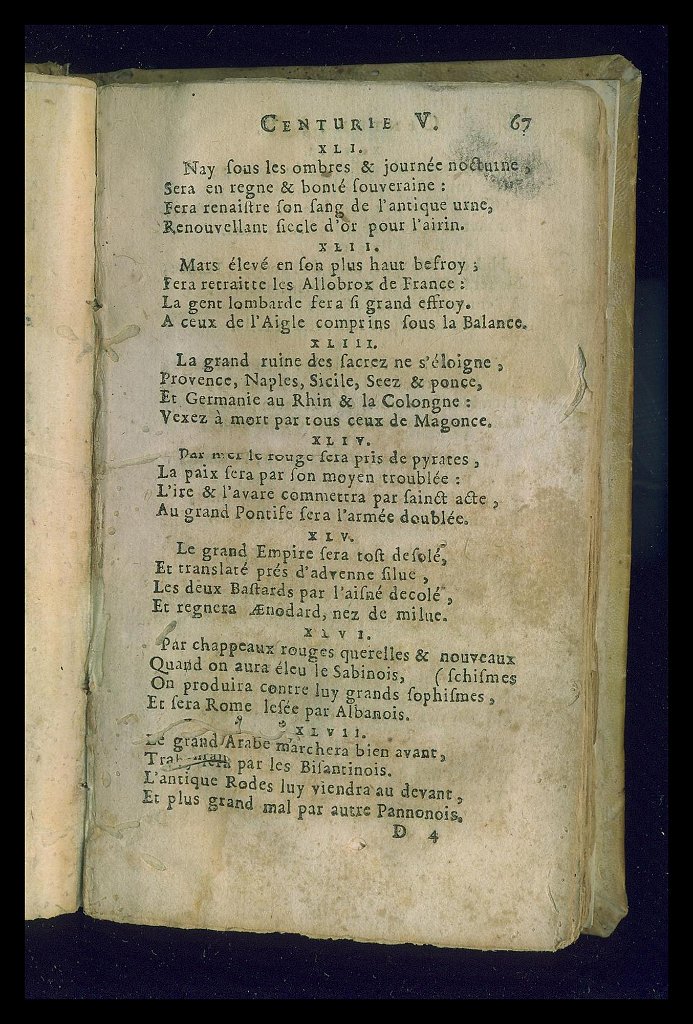 CENTURIE V. 67
XLI.
Nay sous les ombres & journée nocturne,
Sera en regne & bonté souveraine :
Fera renaistre son sang de l'antique urne,
Renouvellant siecle d'or pour l'airin.
XLII.
Mars élevé en son plus haut befroy ;
Fera retraitte les Allobrox de France :
La gent lombarde fera si grand effroy.
A ceux de l'Aigle comprins sous la Balance.
XLIII.
La grand ruine des sacrez ne s'éloigne,
Provence, Naples, Sicile, Seez & ponce,
Et Germanie au Rhin & la Colongne :
Vexez à mort par tous ceux de Magonce.
XLIV.
Par mer le rouge sera pris de pyrates,
La paix sera par son moyen troublée :
L'ire & l'avare commettra par sainct acte,
Au grand Pontife sera l'armée doublée.
XLV.
Le grand Empire sera tost desolé,
Et translaté prés d'advenne silue,
Les deux Bastards par l'aisné decolé,
Et regnera Ænodard, nez de milue.
XLVI.
Par chappeaux rouges querelles & nouveaux
Quand on aura éleu le Sabinois, (schismes
On produira contre luy grands sophismes,
Et sera Rome lesée par Albanois.
XLVII.
Le grand Arabe marchera bien avant,
par les Bisantinois.
L'antique Rodes luy viendra au devant,
Et plus grand mal par autre Pannonois.
D 4